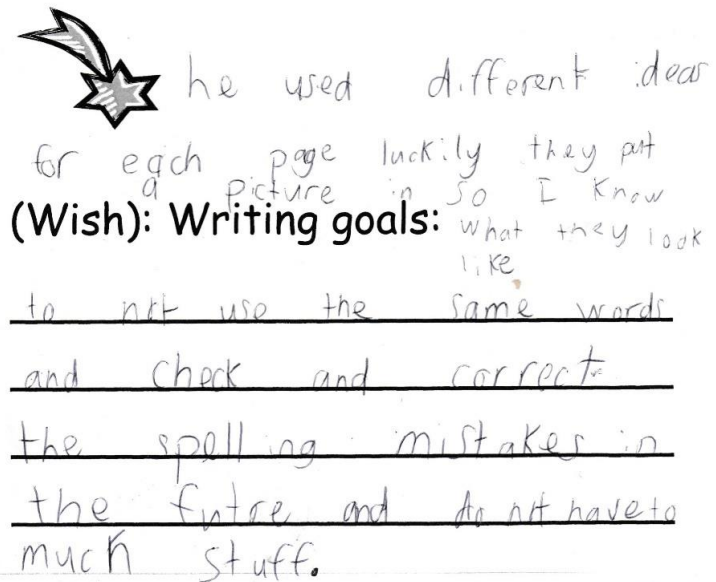 he used different ideas
for each page luckily they put
a picture in so I know
(Wish): Writing goals: what they look
like
to not use the same words
and check and correct
the spelling mistakes in
the futre and do not have to
much stuff.